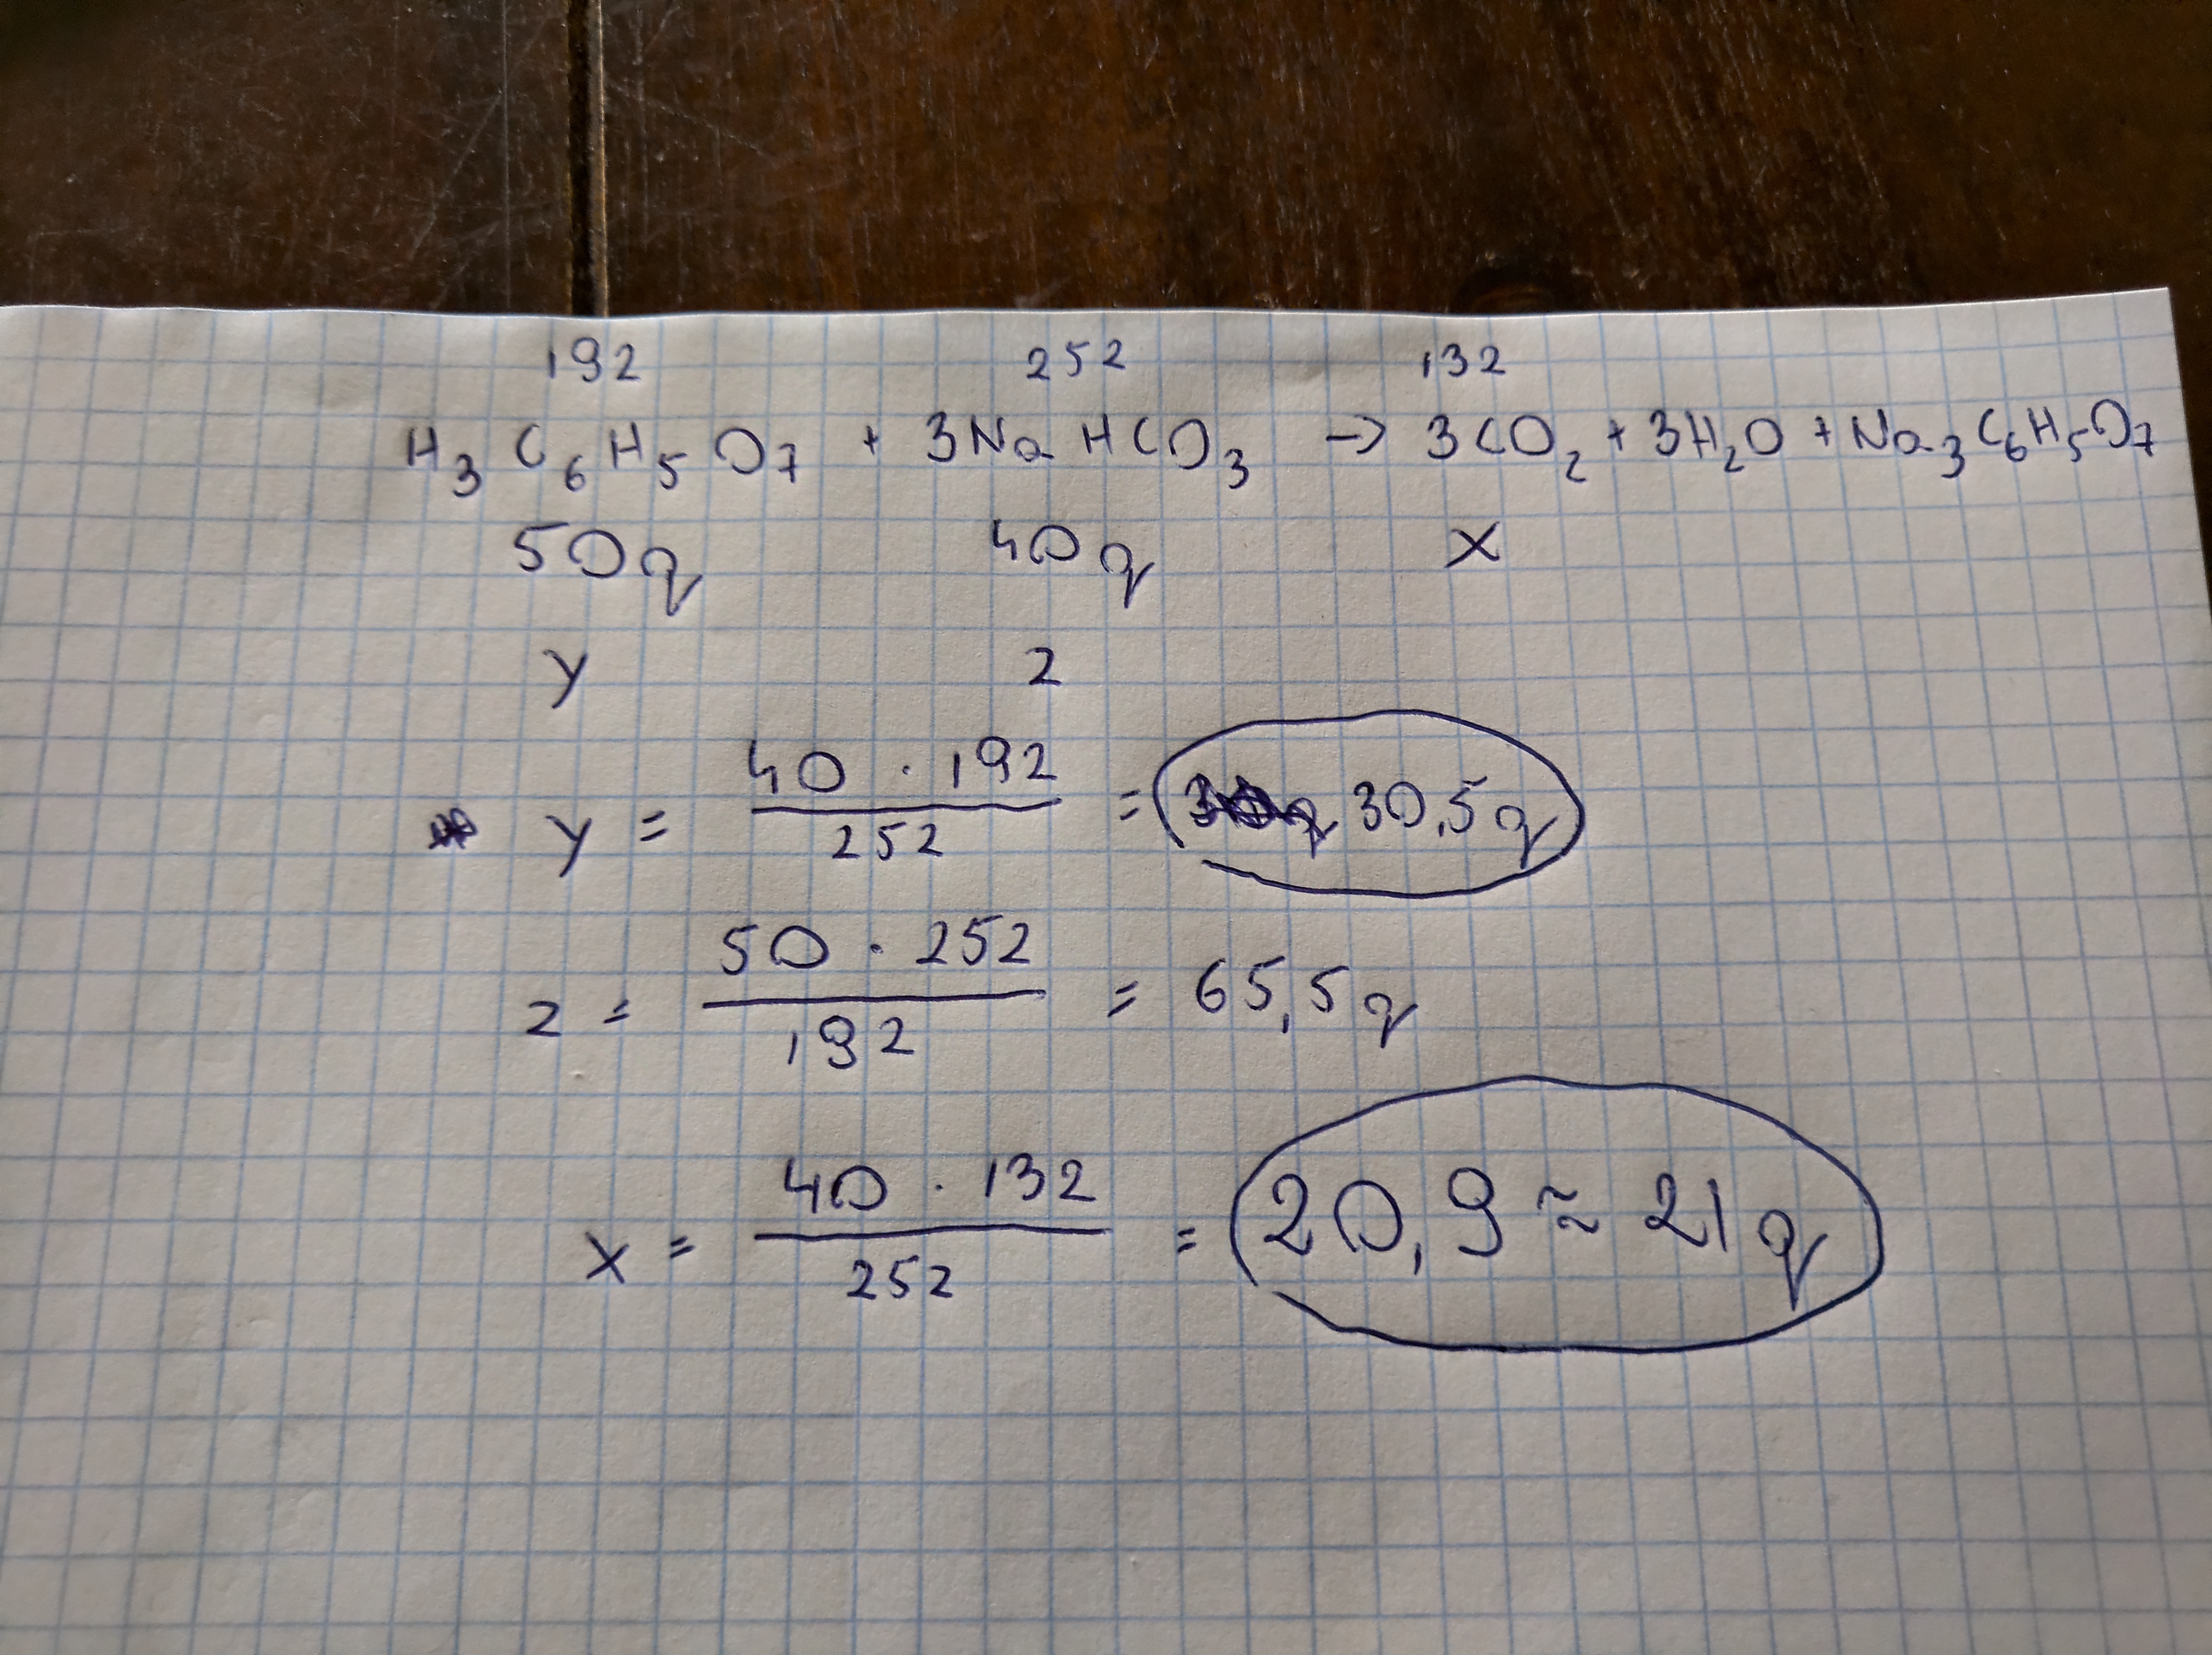 192 252 132
H₃C₆H₅O₇ + 3NaHCO₃ → 3CO₂ + 3H₂O + Na₃C₆H₅O₇
50g 40g x
y z
y = 40 · 192 / 252 = 30,5g
z = 50 · 252 / 192 = 65,5g
x = 40 · 132 / 252 = 20,9 ≈ 21g